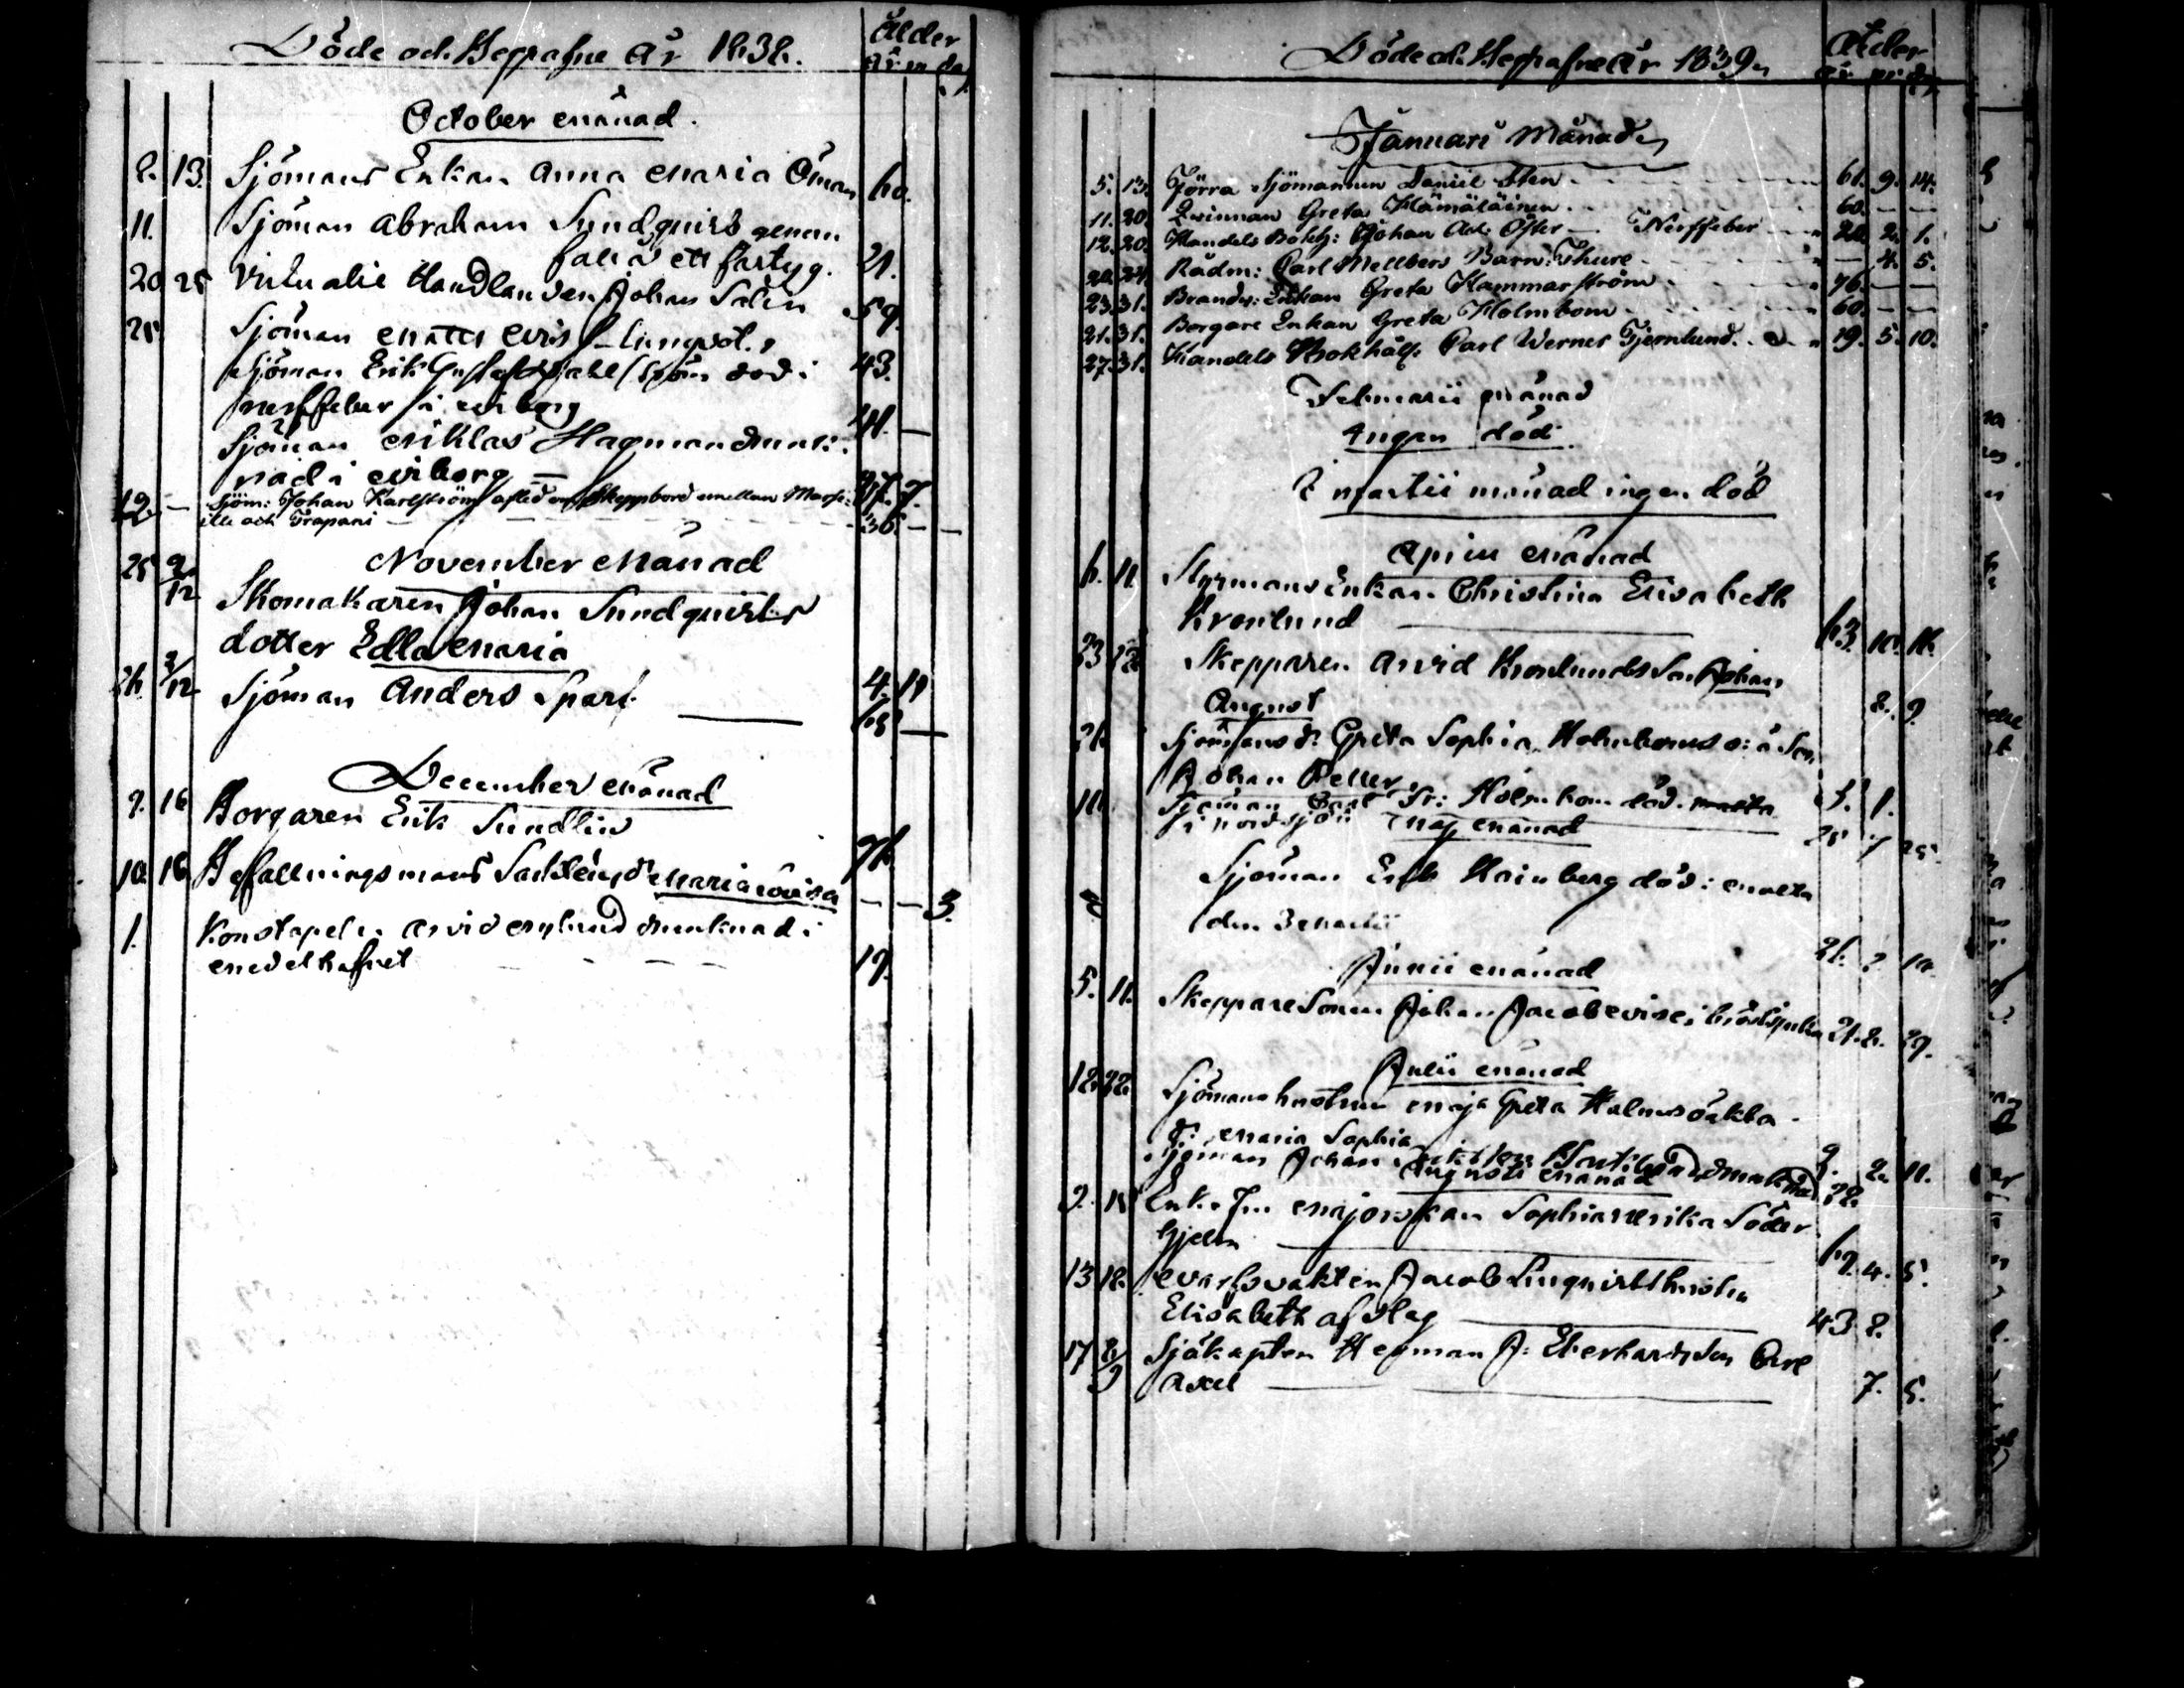 Döde och Begrafne År 1838.
Ålder
År m da
October Månad.
8. 13. Sjömans Enkan Anna Maria Öman 60.
11. Sjöman Abraham Sundquist genom
fall å ett fartyg. 21.
20 25 Victualie Handlanden Johan Salin 59.
28 Sjöman Matts
Sjöman Erik Gustaf död i 43.
nerffeber i Wiborg
Sjöman Niklas Hagman drunk- 41. —
nad i Wiborg —
12. — Sjöm: Johan Karlström afled om Skeppsbord emellan Marse-
ille och Trapani — 36. — —
November Månad
25 2/12 Skomakaren Johan Sundquists
dotter Edla Maria 4. 11
26. 3/12 Sjöman Anders Sparf — 68 —
December Månad
9. 16 Borgaren Erik Sundlin 76.
10. 16 Befallningsmans d. Maria Lovisa — — 3.
1. Konstapeln Arvid Nylund drunknad i
Medelhafvet — — — 19.
Döde och Begrafne År 1839.
Ålder
år m dg
Januari Månad
5. 13. Förra Sjömannen Daniel Sten 61. 9. 14.
11. 20. Qvinnan Greta Hämäläinen 60. — —
12. 20. Handels Bokh: Johan Ad: Öster — Nerffeber — 22. 2. 1.
20. 24. Rådm: Carl Mellbers Barn: Thure — 4. 5.
23. 31. Brandv: Enkan Greta Hammarström 76. — —
21. 31. Borgare Enkan Greta Holmbom 60. — —
27. 31. Handels Bokhåll. Carl Werner Fjernlund 19. 5. 10.
Februarii månad
Ingen död.
I Martii månad ingen död
April Månad
6. 11 Styrmans Enkan Christina Elisabeth
Kronlund — 63. 10. 16.
23 Skepparen Arvid Kronlunds Son Johan
August 8. 9.
26 Sjömans d: Greta Sophia Holmboms o: ä Son
Johan Petter 3. 1.
10. Sjöman Carl Fr: Holmbom död
i Nordsjön 25
Maj Månad
Sjöman Erik Hainberg död i Malta
den 3 Martii
Junii Månad
5. 11. Skeppare Sonen Johan Jacob i bröstsjuka 21. 2. 29.
Julii Månad
12. 22. Sjömans hustrun Maja Greta Holms oäkta
d: Maria Sophia 2. 11.
Sjöman Johan drunknad 22.
Augusti Månad
9. 15 Enke Fru Majorskan Sophia Ulrika Söder
hjelm — 69. 4. 5.
13 18. Jacob Linquists hustru
Elisabeth af Hag — 43 8.
17 8/9 Sjökapten Herman J: Eberhards Son Carl
Axel — 7. 5.